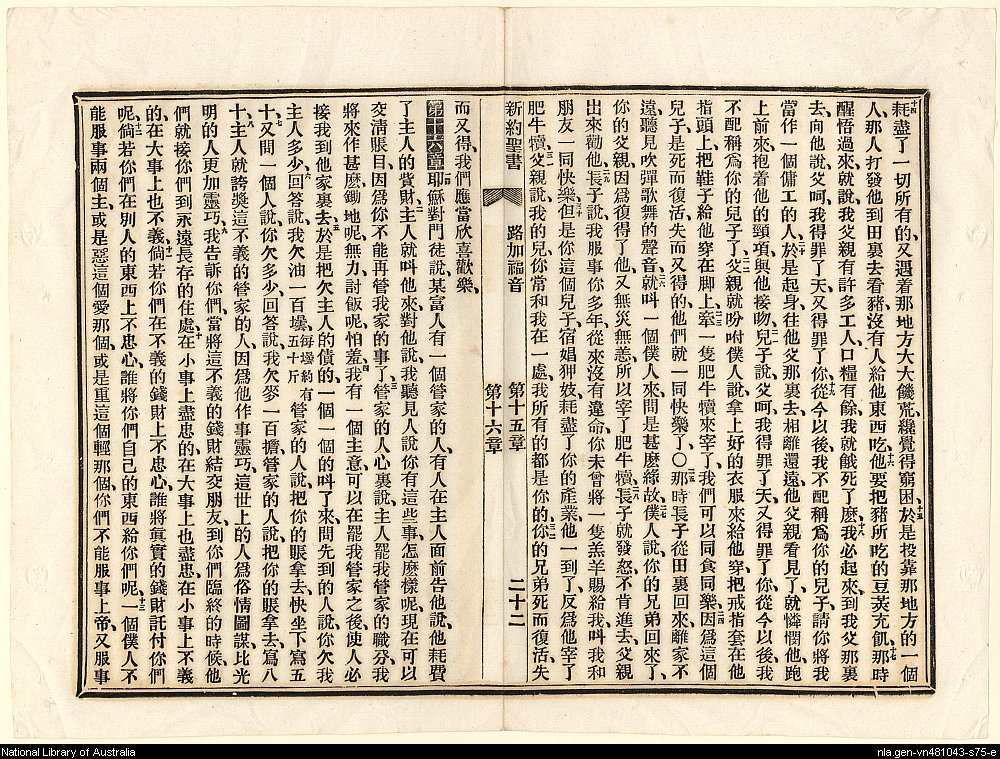 耗盡了一切所有的又遇着那地方大大饑荒纔覺得窮困於是投靠那地方的一個
人那人打發他到田裏去看豬沒有人給他東西吃他要把豬所吃的豆莢充飢那時
醒悟過來就說我父親有許多工人口糧有餘我就餓死了麽我必起來到我父那裏
去向他說父呵我得罪了天又得罪了你從今以後我不配稱爲你的兒子請你將我
當作一個傭工的人於是起身往他父那裏去相離還遠他父親看見了就憐憫他跑
上前來抱着他的頸項與他接吻兒子說父呵我得罪了天又得罪了你從今以後我
不配稱爲你的兒子了父親就吩咐僕人說拿上好的衣服來給他穿把戒指套在他
指頭上把鞋子給他穿在脚上牽一隻肥牛犢來宰了我們可以同食同樂因爲這個
兒子是死而復活失而又得的他們就一同快樂了○那時長子從田裏回來離家不
遠聽見吹彈歌舞的聲音就叫一個僕人來問是甚麽緣故僕人說你的兄弟回來了
你的父親因爲復得了他又無災無恙所以宰了肥牛犢長子就發怒不肯進去父親
出來勸他長子說我服事你多年從來沒有違命你未曾將一隻羔羊賜給我叫我和
朋友一同快樂但是你這個兒子宿娼狎妓耗盡了你的產業他一到了反爲他宰了
肥牛犢父親說我的兒你常和我在一處我所有的都是你的你的兄弟死而復活失
新約聖書 路加福音 第十五章 第十六章 二十二
而又得我們應當欣喜歡樂
第十六章耶穌對門徒說某富人有一個管家的人有人在主人面前告他說他耗費
了主人的貲財主人就叫他來對他說我聽見人說你有這些事怎麽樣呢現在可以
交淸賬目因爲你不能再管我家的事了管家的人心裏說主人罷我管家的職分我
將來作甚麽鋤地呢無力討飯呢怕羞我有一個主意可以在罷我管家之後使人必
接我到他家裏去於是把欠主人的債的一個一個的叫了來問先到的人說你欠我
主人多少回答說我欠油一百壜每壜約有五十斤管家的人說把你的賬拿去快坐下寫五
十又問一個人說你欠多少回答說我欠麥一百擔管家的人說把你的賬拿去寫八
十主人就誇獎這不義的管家的人因爲他作事靈巧這世上的人爲俗情圖謀比光
明的人更加靈巧我告訴你們當將這不義的錢財結交朋友到你們臨終的時候他
們就接你們到永遠長存的住處在小事上盡忠的在大事上也盡忠在小事上不義
的在大事上也不義倘若你們在不義的錢財上不忠心誰將眞實的錢財託付你們
呢倘若你們在別人的東西上不忠心誰將你們自己的東西給你們呢一個僕人不
能服事兩個主或是惡這個愛那個或是重這個輕那個你們不能服事上帝又服事
National Library of Australia
nla.gen-vn481043-s75-e